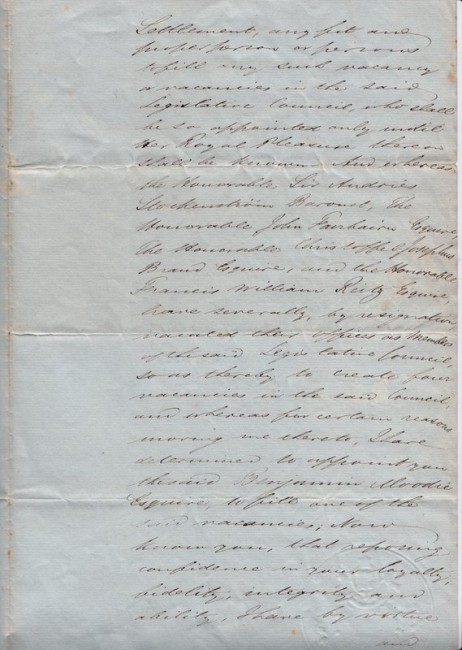 Settlement, any fit and
proper person or persons
to fill any such vacancy
or vacancies in the said
Legislative Council, who shall
be so appointed only until
Her Royal Pleasure thereon
shall be known. And whereas
the Honorable Sir Andries
Stockenström Baronet, The
Honorable John Fairbairn Esquire,
The Honorable Christoffel Josephus
Brand Esquire, and the Honorable
Francis William Reitz Esquire,
have severally, by resignation
vacated their offices as Members
of the said Legislative Council
so as thereby to create four
vacancies in the said Council,
and whereas for certain reasons
moving me thereto, I have
determined to appoint you
the said Benjamin Moodie
Esquire, to fill one of the
said vacancies, Now
know you, that reposing
confidence in your loyalty,
fidelity, integrity and
ability, I have by virtue
and